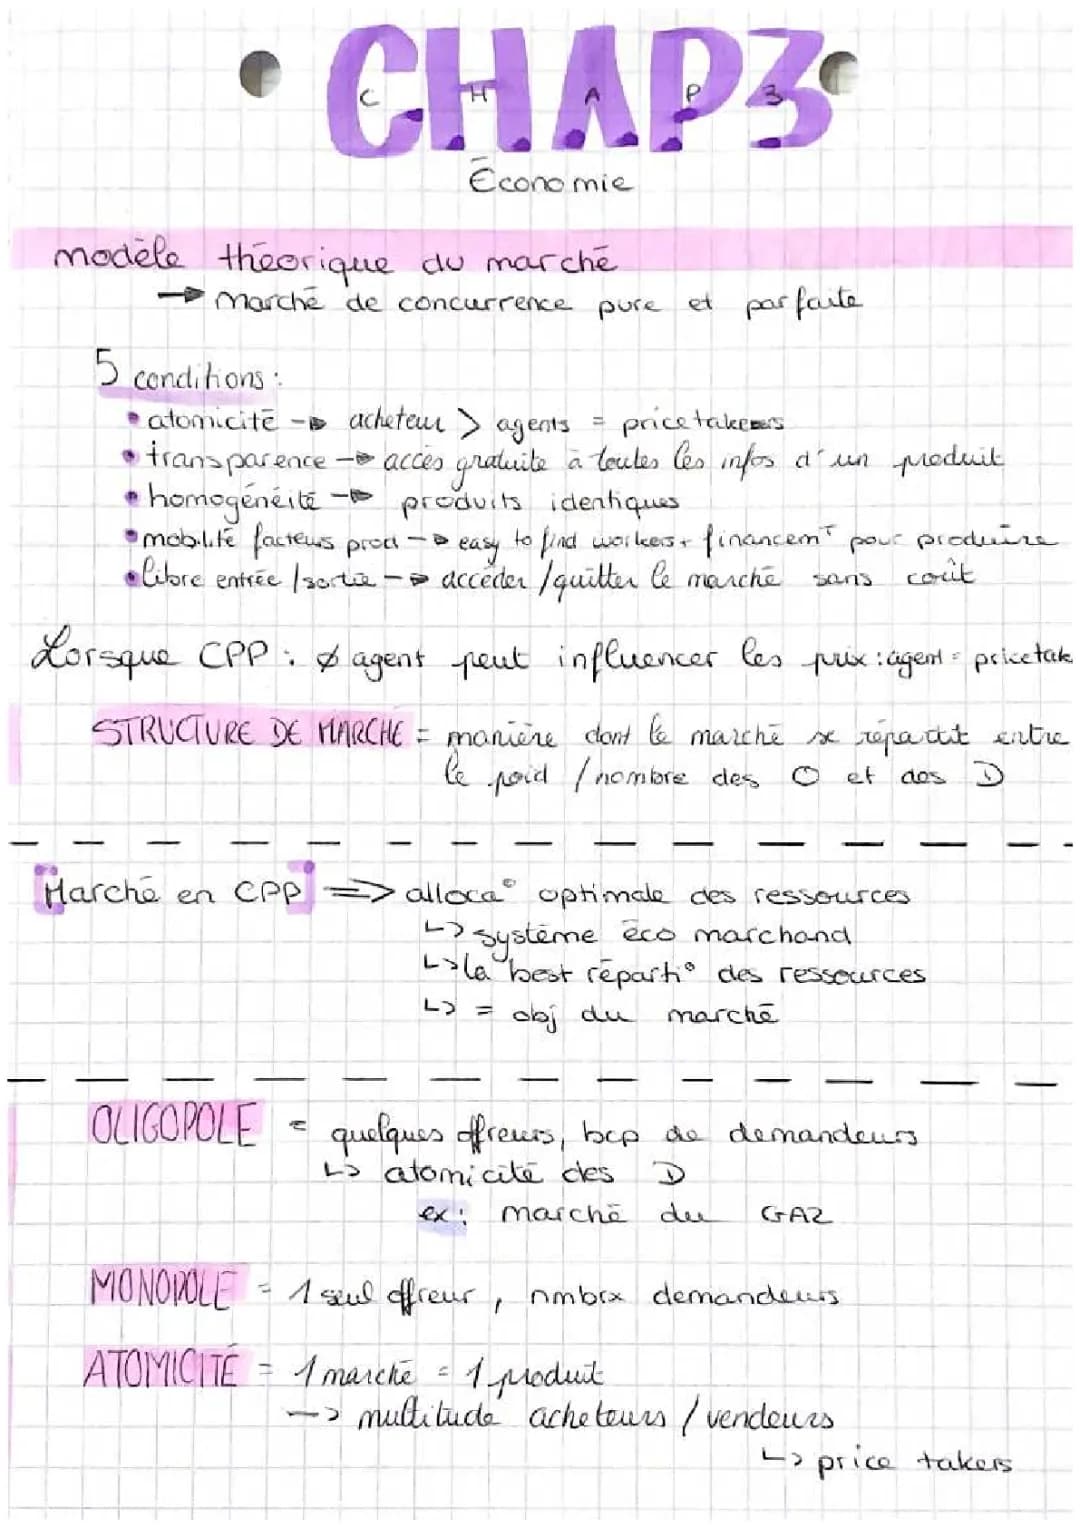 CHAP3
C H A P 3
Économie
modèle théorique du marché
→ Marché de concurrence pure et parfaite
5 conditions :
• atomicité → acheteur > agents = pricetakers
• transparence → accès gratuite à toutes les infos d'un produit
• homogénéité → produits identiques
• mobilité facteurs prod → easy to find workers + financemt pour produire
• libre entrée / sortie → accéder / quitter le marché sans coût
Lorsque CPP : Ø agent peut influencer les prix : agent = pricetak
STRUCTURE DE MARCHÉ = manière dont le marché se répartit entre
le poid / nombre des O et des D
Marché en CPP => alloca° optimale des ressources
↳ système éco marchand
↳ la best réparti° des ressources
↳ = obj du marché
OLIGOPOLE = quelques offreurs, bcp de demandeurs
↳ atomicité des D
ex : marché du GAZ
MONOPOLE = 1 seul offreur, nmbrx demandeurs
ATOMICITÉ = 1 marché = 1 produit
→ multitude acheteurs / vendeurs
↳ price takers